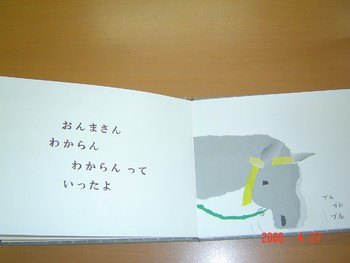 おんまさん
わからん
わからん って
いったよ
ブル
ブル
ブル